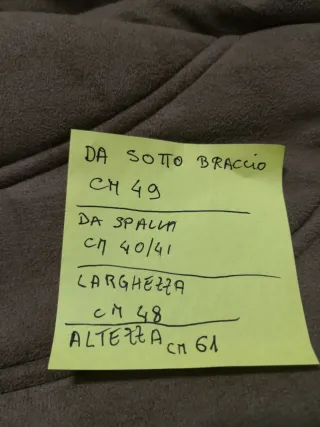 DA SOTTO BRACCIO
CM 49
DA SPALLA
CM 40/41
LARGHEZZA
CM 48
ALTEZZA CM 61